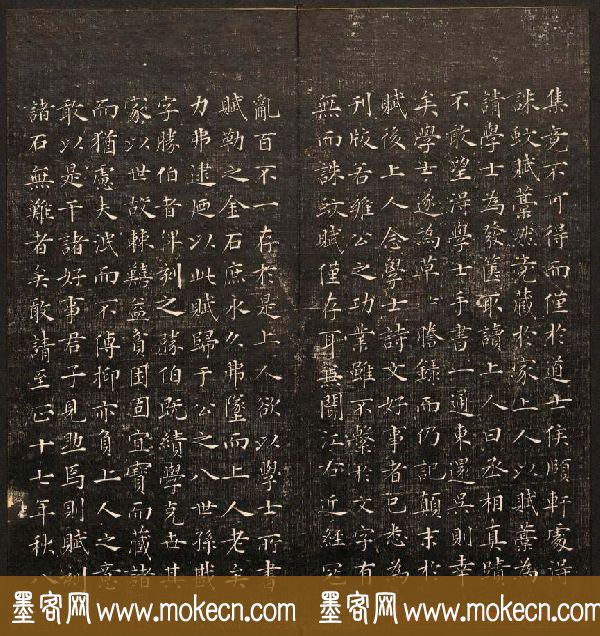 集竟不可得而僅於道士侯頤軒處得
誅蚊賦藁然竟藏於家上人以賦藁為
請學士為發篋取讀上人曰丞相真蹟
不敢望得學士手書一通東還吳則幸
矣學士遂為草〻謄錄而仍記顛末於
賦後上人念學士詩文好事者已悉為
刊版若雍公之功業雖不繫於文字有
無而誅蚊賦僅存耳兵閧江右近經完
亂百不一存於是上人欲以學士所書
賦勒之金石庶永久弗墜而上人老矣
力弗逮廼以此賦歸于公之八世孫戡
字勝伯者俾刻之勝伯既績學克世其
家以世故棘囏益負困固宜寶而藏諸
而猶慮夫泯而不傳抑亦負上人之意
敢以是干諸好事君子見助焉則賦刻
諸石無難者矣敢請至正十七年秋八
墨客网 www.mokecn.com 墨客网 www.mokecn.com